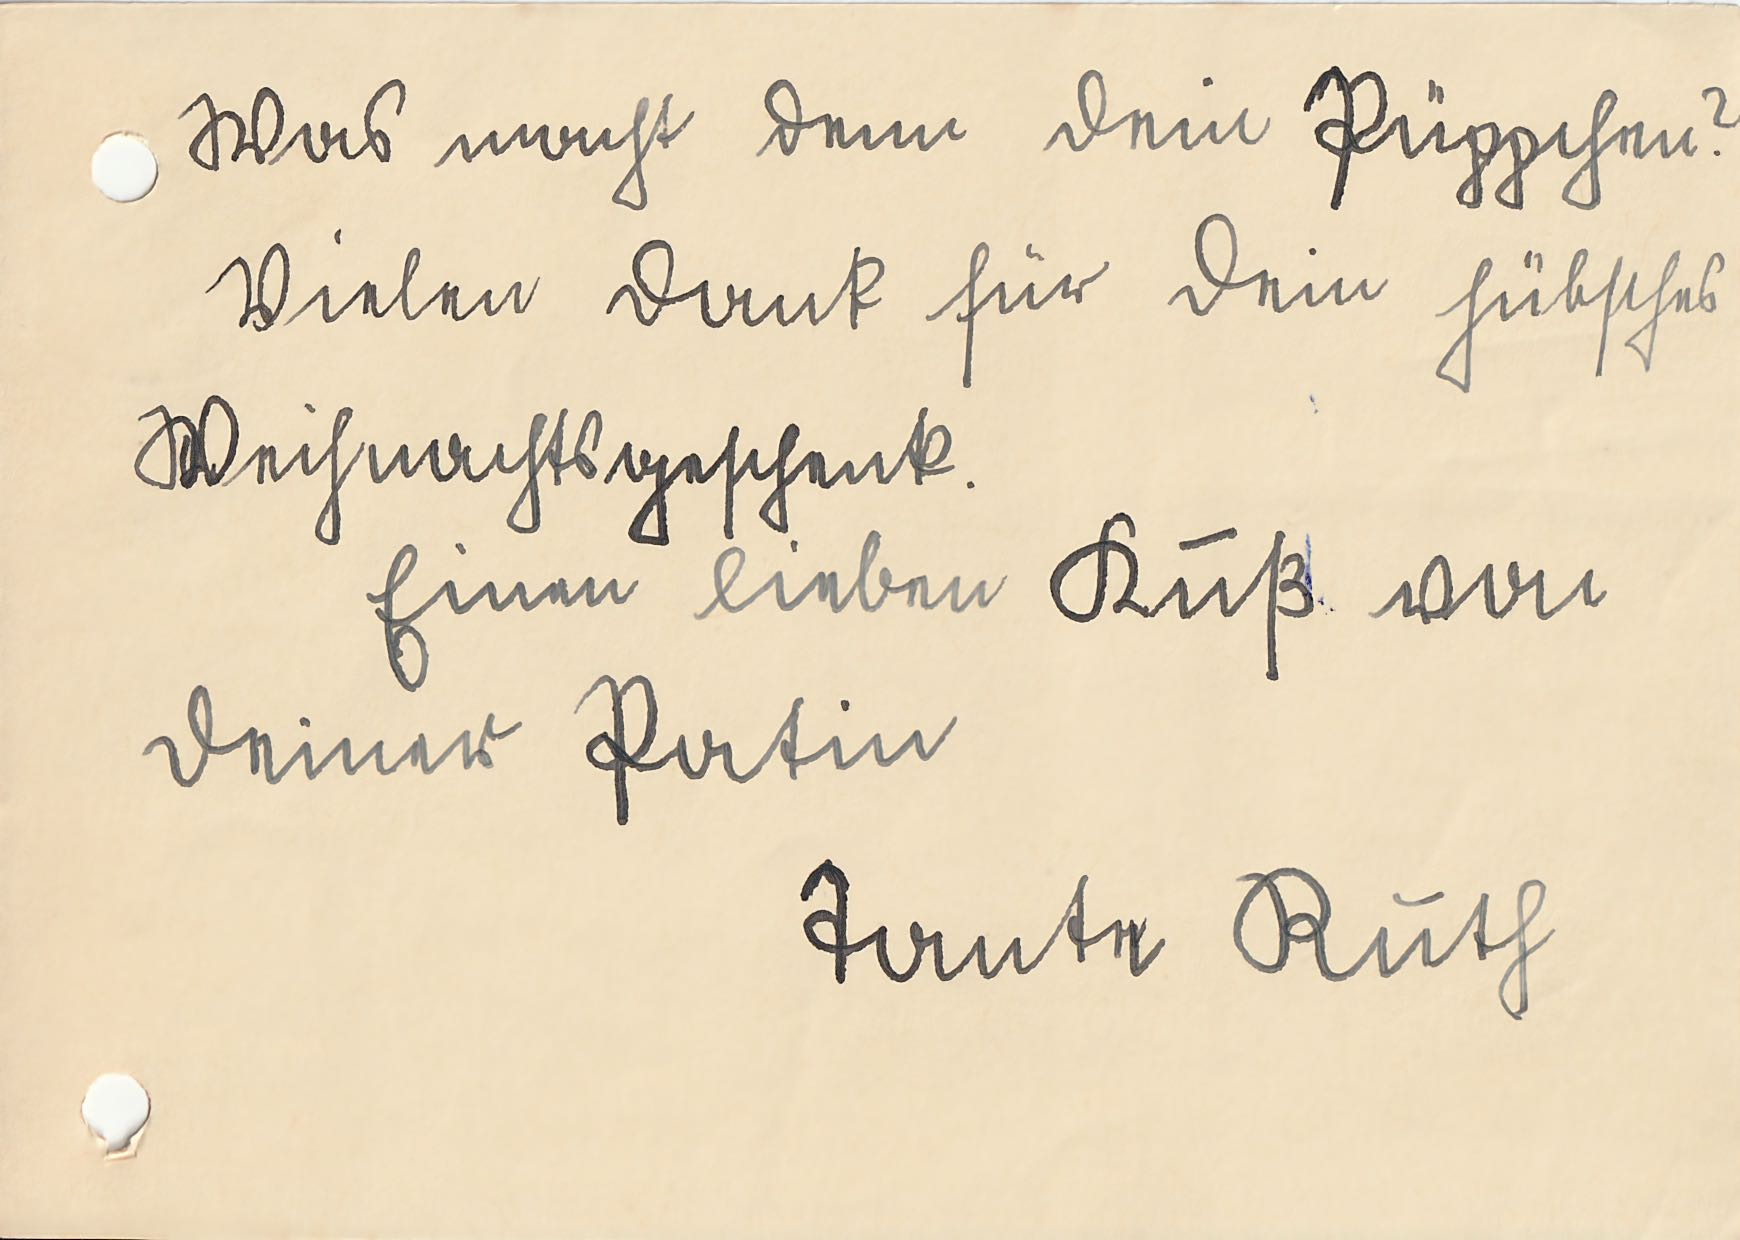 Was macht denn dein Püppchen?
Vielen Dank für Dein hübsches
Weihnachtsgeschenk.
Einen lieben Kuß von
Deiner Patin
Tante Ruth